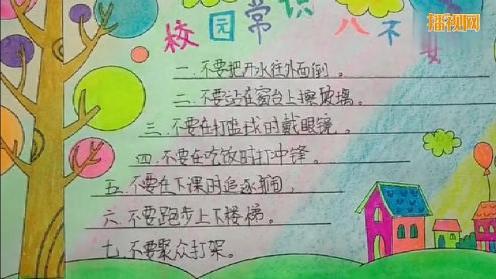 播视网
校园常识八不要
一、不要把开水往外面倒。
二、不要站在窗台上擦玻璃。
三、不要在打篮球时戴眼镜。
四、不要在吃饭时打冲锋。
五、不要在下课时追逐打闹。
六、不要跑步上下楼梯。
七、不要聚众打架。